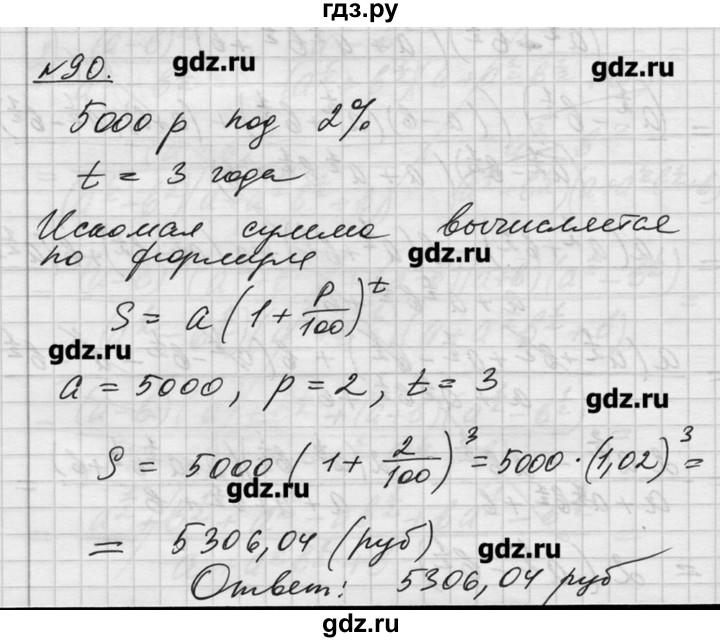 гдз.ру
№90.
gdz.ru
gdz.ru
5000 р под 2%
t = 3 года
Искомая сумма вычисляется
по формуле
gdz.ru
S = a(1 + p/100)^t
gdz.ru
a = 5000, p = 2, t = 3
gdz.ru
S = 5000(1 + 2/100)^3 = 5000·(1,02)^3 =
gdz.ru
= 5306,04 (руб)
gdz.ru
Ответ: 5306,04 руб
gdz.ru